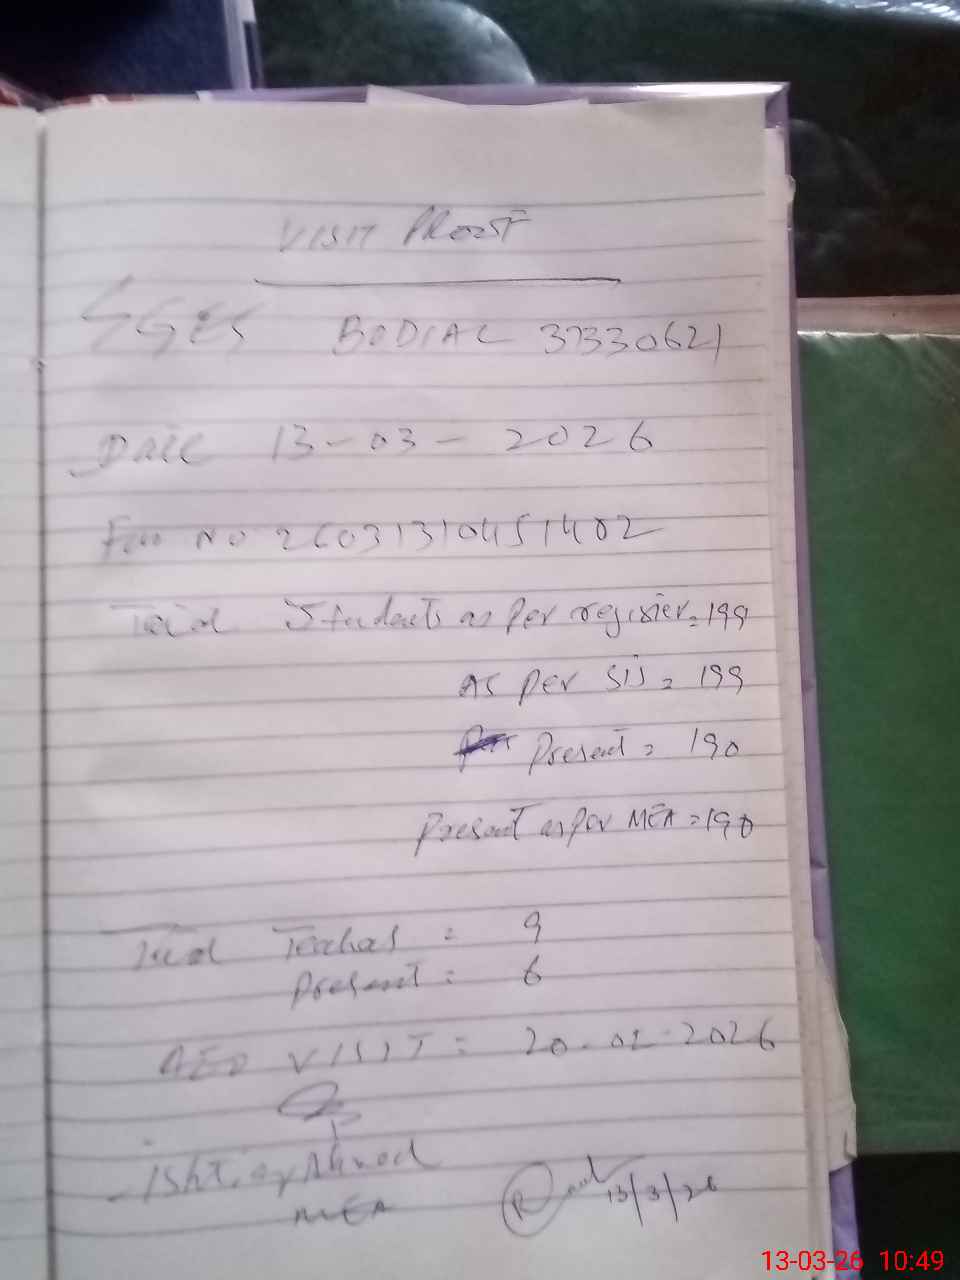 VISIT PROOF
GGES BODIAL 37330621
Date 13-03-2026
No 26031310451402
Total Students as per register=199
As per SIS = 199
Present = 190
Present as per MEA=190
Total Teachers = 9
Present = 6
AEO VISIT = 20-02-2026
Ishtiaq Ahmed
MEA 13/3/26
13-03-26 10:49